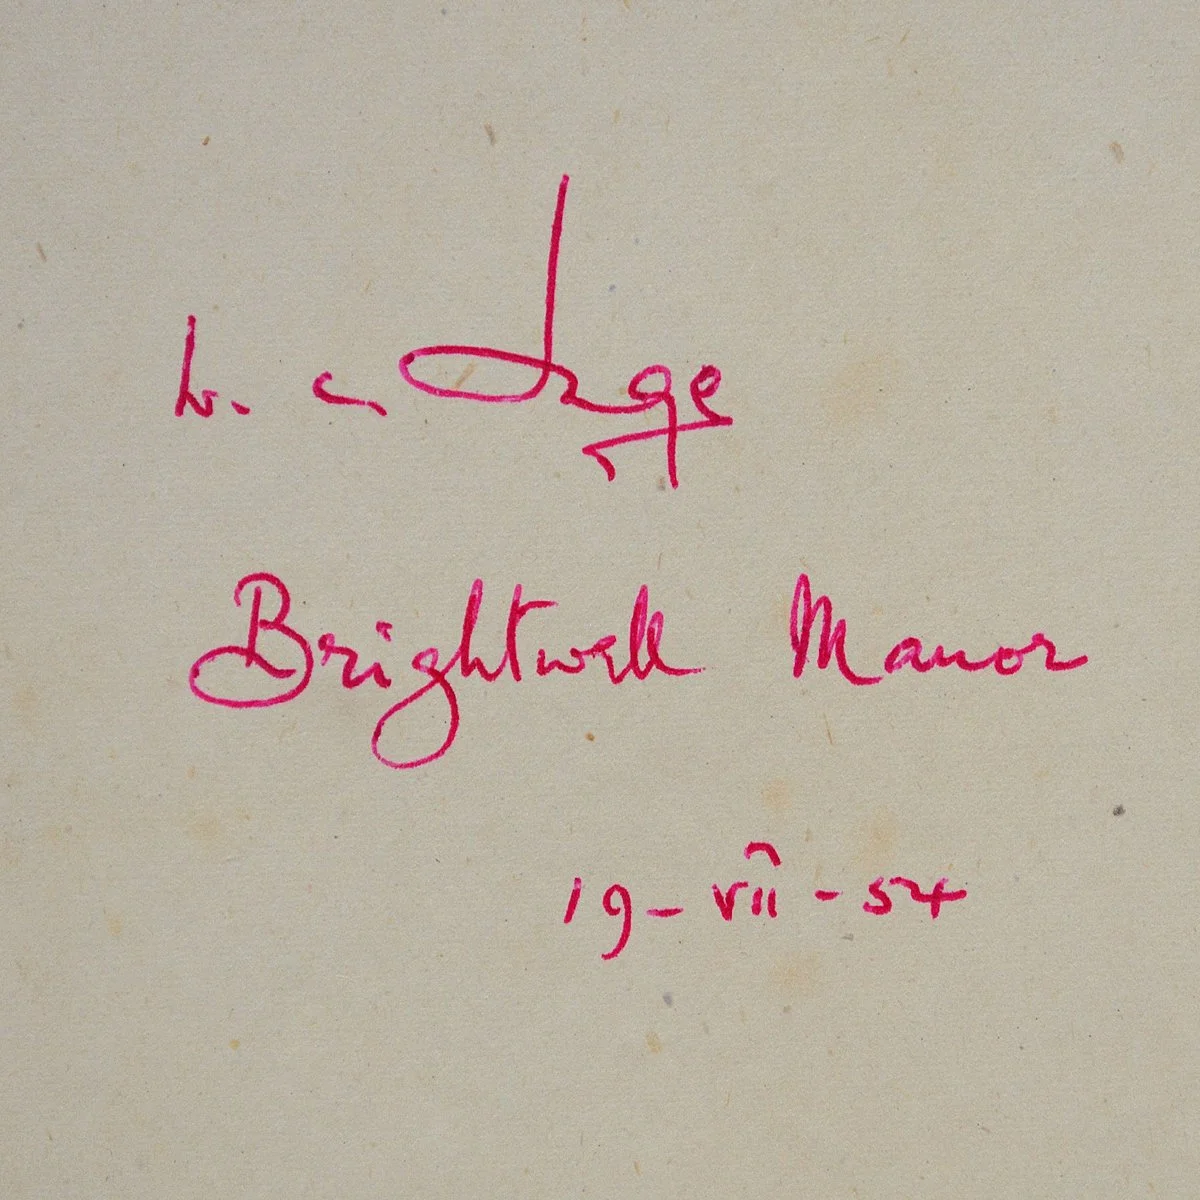 Brightwell Manor
19-vii-54